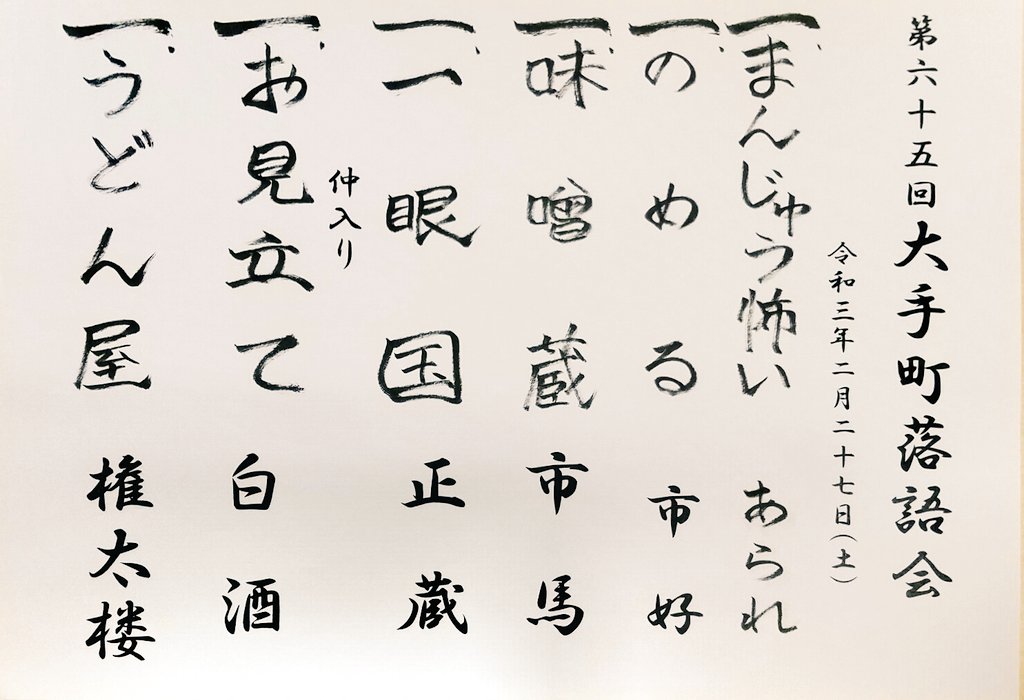 第六十五回 大手町落語会
令和三年二月二十七日(土)
一、まんじゅう怖い あられ
一、のめる 市好
一、味噌蔵 市馬
一、一眼国 正蔵
仲入り
一、お見立て 白酒
一、うどん屋 権太楼